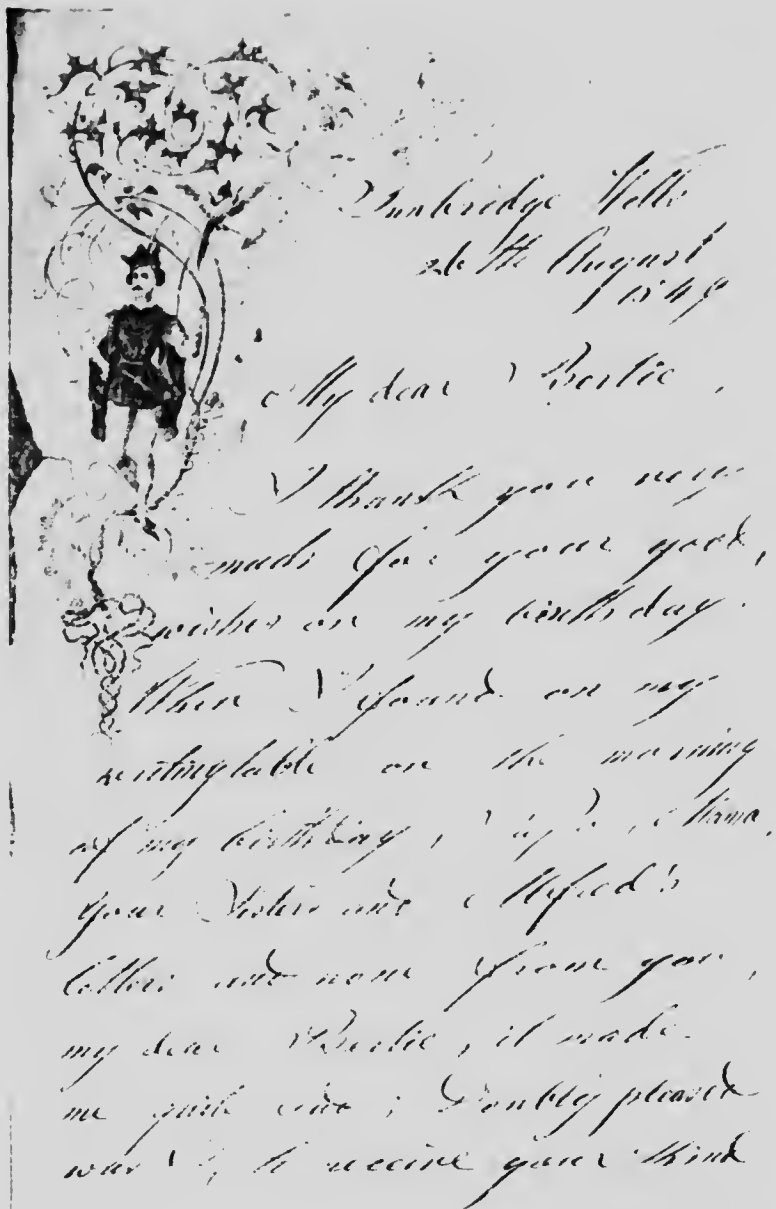 Tunbridge Wells
26th August
1849
My dear Bertie,
I thank you very
much for your good,
wishes on my birthday.
When I found on my
writingtable on the morning
of my birthday, Papa, Mama,
your Sisters and Alfred's
letters and none from you,
my dear Bertie, it made
me quite sad; Doubly pleased
was I, to receive your kind